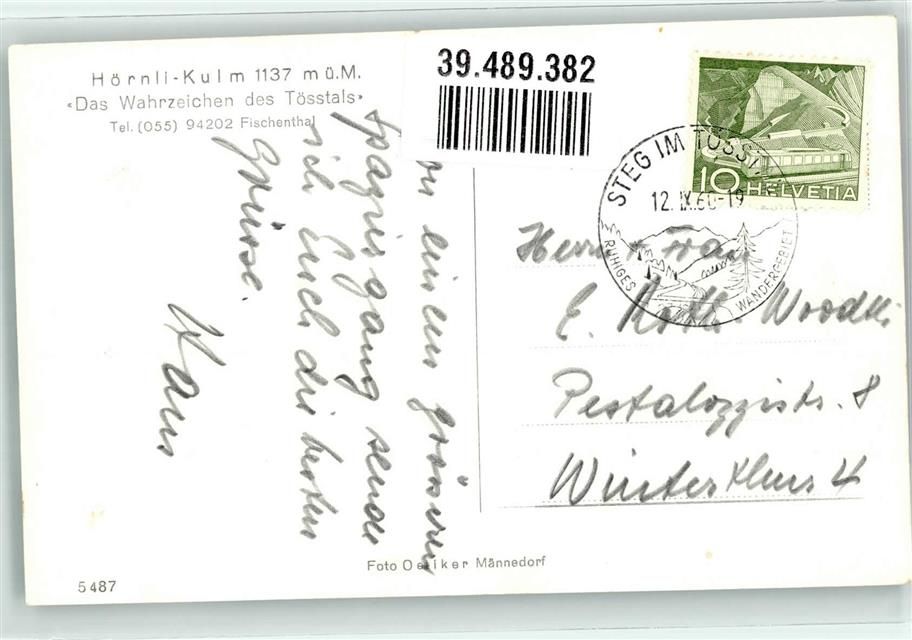 Hörnli-Kulm 1137 mü.M.
«Das Wahrzeichen des Tösstals»
Tel. (055) 94202 Fischenthal
39.489.382
10 HELVETIA
STEG IM TÖSST
12. IX. 60-19
RUHIGES WANDERGEBIET
einem grösseren
spaziergang sende
ich Euch die besten
Grüsse.
Hans
Herrn + Frau
E.
Pestalozzistr. 8
Winterthur 4
Foto Oetiker Männedorf
5487